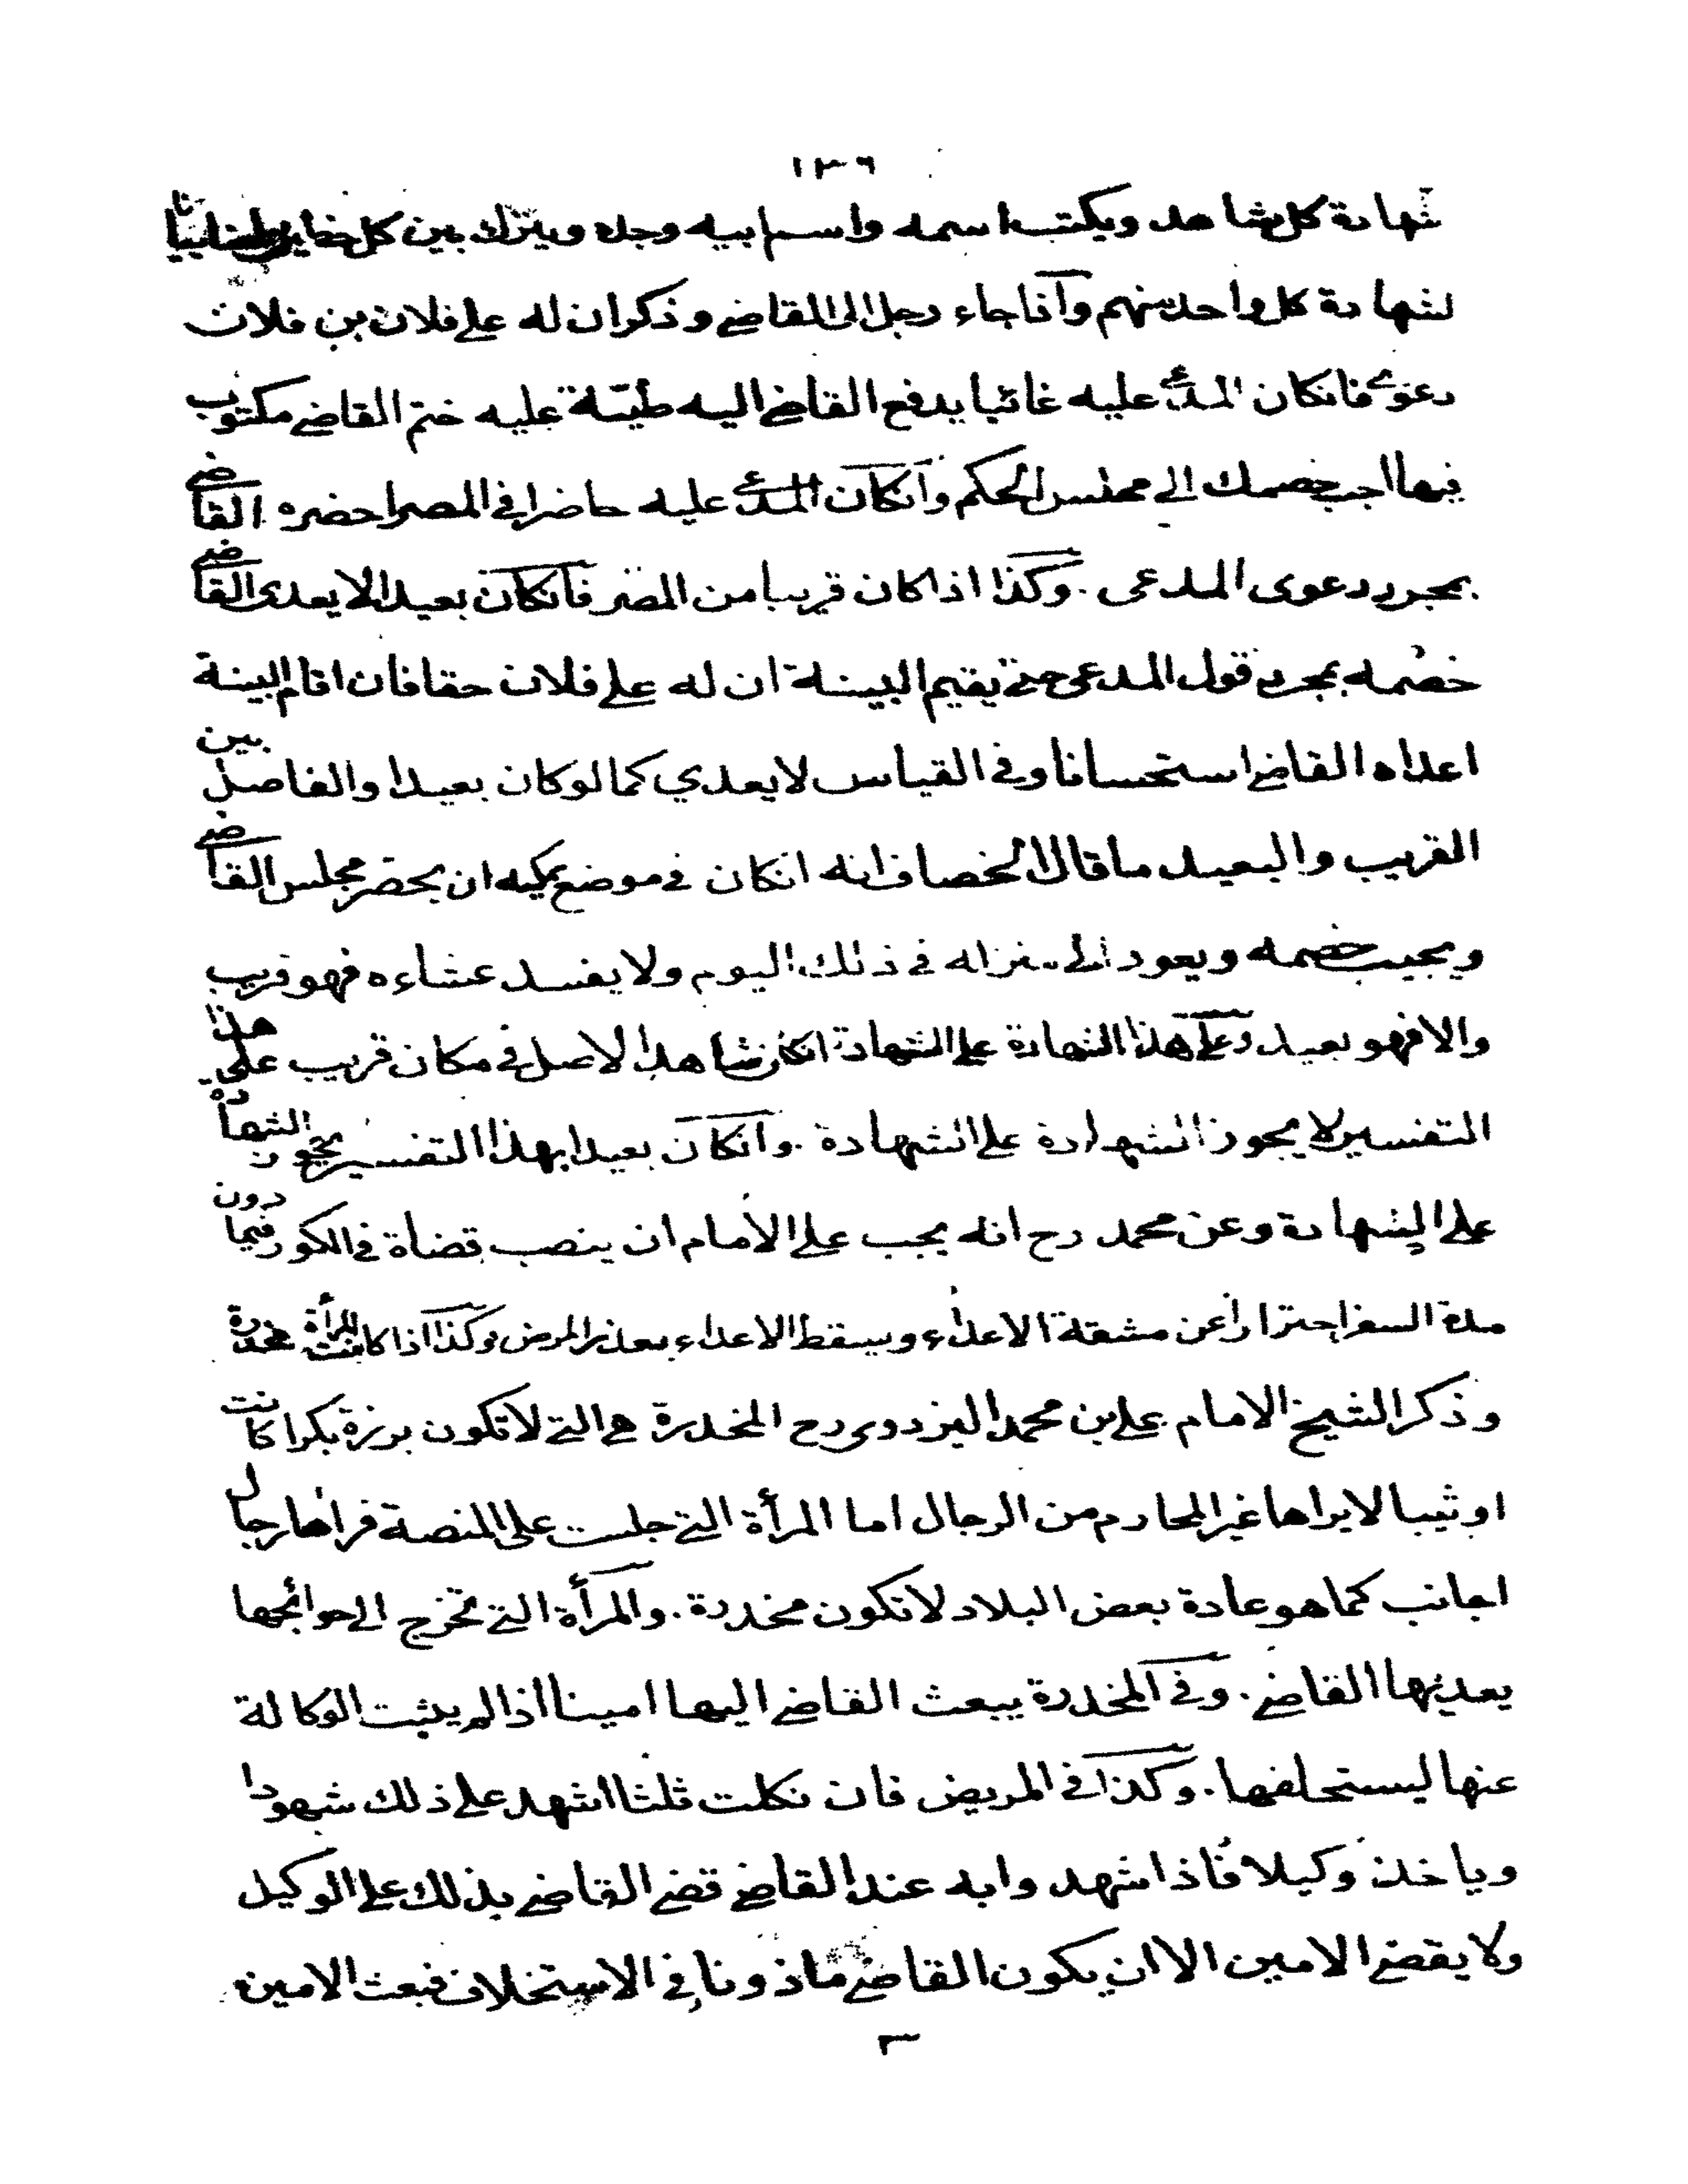 ١٣٦
شهادة كل شاهد ويكتب اسمه واسم ابيه وجده ويترك بين كل
لشهادة كل واحد منهم وآذا جاء رجل الى القاضي وذكر ان له على فلان بن فلان
دعوى فانكان المدعى عليه غائبا يدفع القاضي اليه طينة عليه ختم القاضي مكتوب
فيها اجب خصمك الى مجلس الحكم وآنكان المدعى عليه حاضرا في المصر احضره القاضي
بمجرد دعوى المدعى . وكذا اذا كان قريبا من المصر فآنكان بعيدا لا يعدى القاضي
خصمه بمجرد قول المدعى حتى يقيم البينة ان له على فلان حقا فان اقام البينة
اعداه القاضي استحسانا وفي القياس لا يعدي كما لو كان بعيدا والفاصل بين
القريب والبعيد ما قال الخصاف انه انكان في موضع يمكنه ان يحضر مجلس القاضي
ويجيب خصمه ويعود الى منزله في ذلك اليوم ولا يفسد عشاءه فهو قريب
والا فهو بعيد وعلى هذا الشهادة على الشهادة انكان شاهد الاصل في مكان قريب على هذا
التفسير لا يجوز الشهادة على الشهادة . وآنكان بعيدا بهذا التفسير يجوز الشهادة
على الشهادة وعن محمد رح انه يجب على الامام ان ينصب قضاة في الكور فيما دون
مدة السفر احترازا عن مشقة الاعداء ويسقط الاعداء بعذر المرض وكذا اذا كانت المرأة مخدرة
وذكر الشيخ الامام على بن محمد البزدوى رح المخدرة هي التي لا تكون برزة بكرا كانت
او ثيبا لا يراها غير المحارم من الرجال اما المرأة التي جلست على المنصة فراها رجال
اجانب كما هو عادة بعض البلاد لا تكون مخدرة . والمرأة التي تخرج الى حوائجها
يعديها القاضي . وفي المخدرة يبعث القاضي اليها امينا اذا لم يثبت الوكالة
عنها ليستحلفها . وكذا في المريض فان نكلت ثلثا اشهد على ذلك شهودا
وياخذ وكيلا فاذا شهد وابه عند القاضي قضى القاضي بذلك على الوكيل
ولا يقضى الامين الا ان يكون القاضي ماذونا في الاستخلاف فبعث الامين